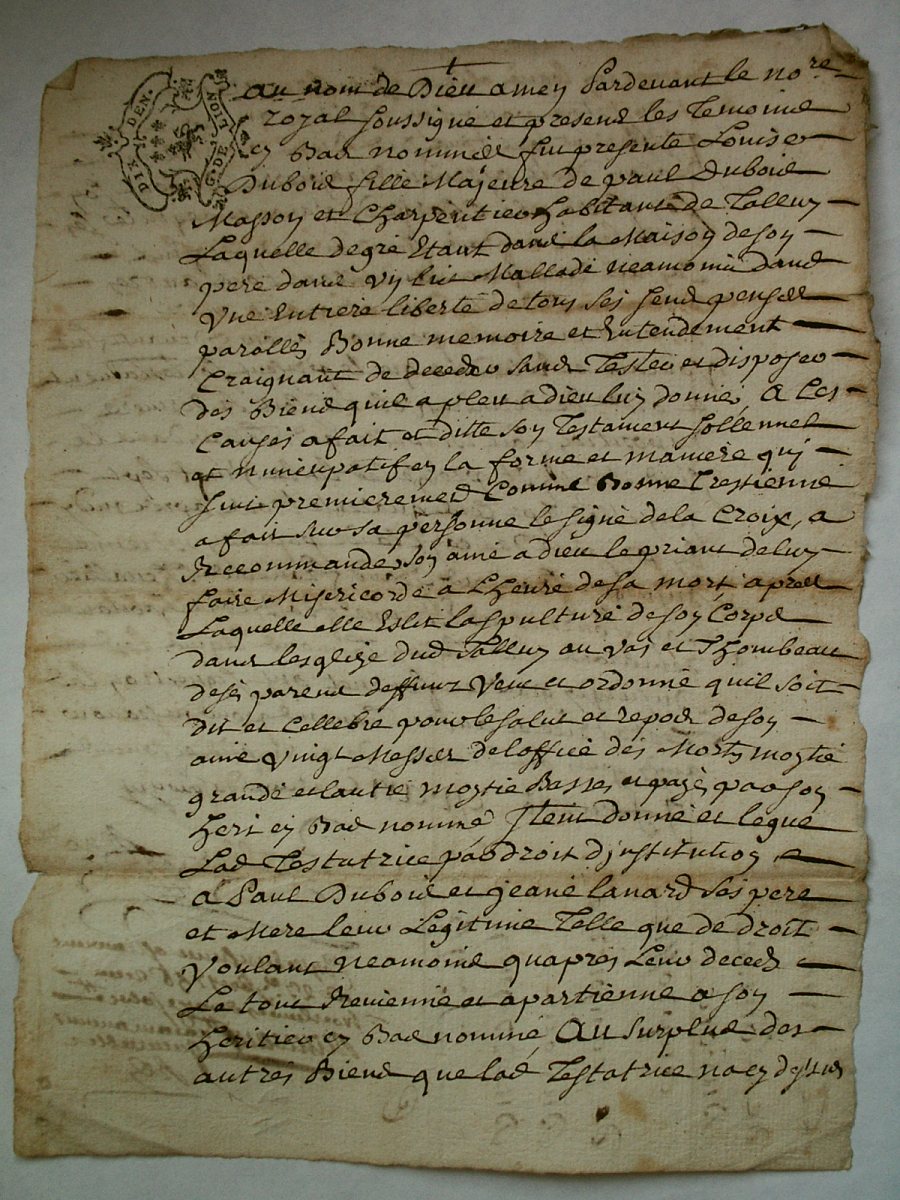 DIX DEN.
G. DE LION
Au nom de Dieu amen Pardevant le no.re
royal soussigné et presend les Temoind
ej Bas nommés fut presente Louise
Duboid fille Majeure de paul Duboid
Masson et Charpentier habitant de Talluy
Laquelle de gré Etant dans la Maison de son
pere dans un lict Mallade neamoins dans
Une Entiere liberté de tous ses sens pensées
parolles Bonne memoire et Entendement
Craignant de deceder sans Tester et disposer
des Biens quil a pleu a dieu luy donné, A Ces
Causes a fait et ditte son Testament sollennel
et nuncupatif en la forme et maniere qui
suit premierement Comme Bonne Crestienne
a fait sur sa personne le signe de la Croix, a
Recommandé son ame a dieu le priant de luy
faire Misericorde a L'heure de sa mort apres
Laquelle elle Eslit la spulture de son Corps
dans lesglize dud Talluy au vas et Thombeau
de ses parens deffunz Veut et ordonne quil soit
dit et Cellebré pour le salut et repos de son
ame vingt Messes de loffice des Morts moytié
grande et lautre moytie Basses et payés par son
Heri ej Bas nommé, Item donne et legue
Lad Testatrice par droit dinstitution
a Paul Dubois et jeane lanard ses pere
et Mere leur Legitime Telle que de droit
Voulant neamoins quapres Leur deceds
Le tout Revienne et apartienne a son
Heritier ej Bas nommé, Au surplus des
autres Biens que lad Testatrice na ej dessus